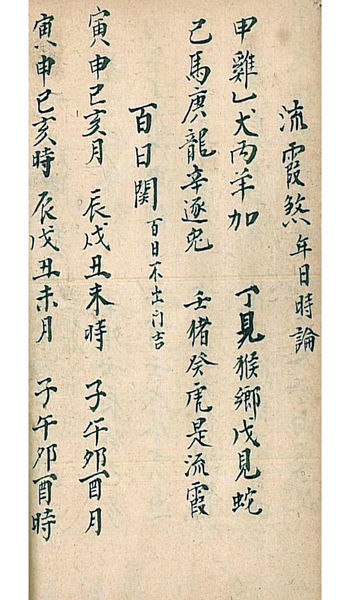 流霞煞年日時論
甲雞乙犬丙羊加 丁見猴鄉戊見蛇
己馬庚龍辛逐兎 壬猪癸虎是流霞
百日関百日不出门吉
寅申巳亥月 辰戌丑未時 子午卯酉月
寅申巳亥時 辰戌丑未月 子午卯酉時